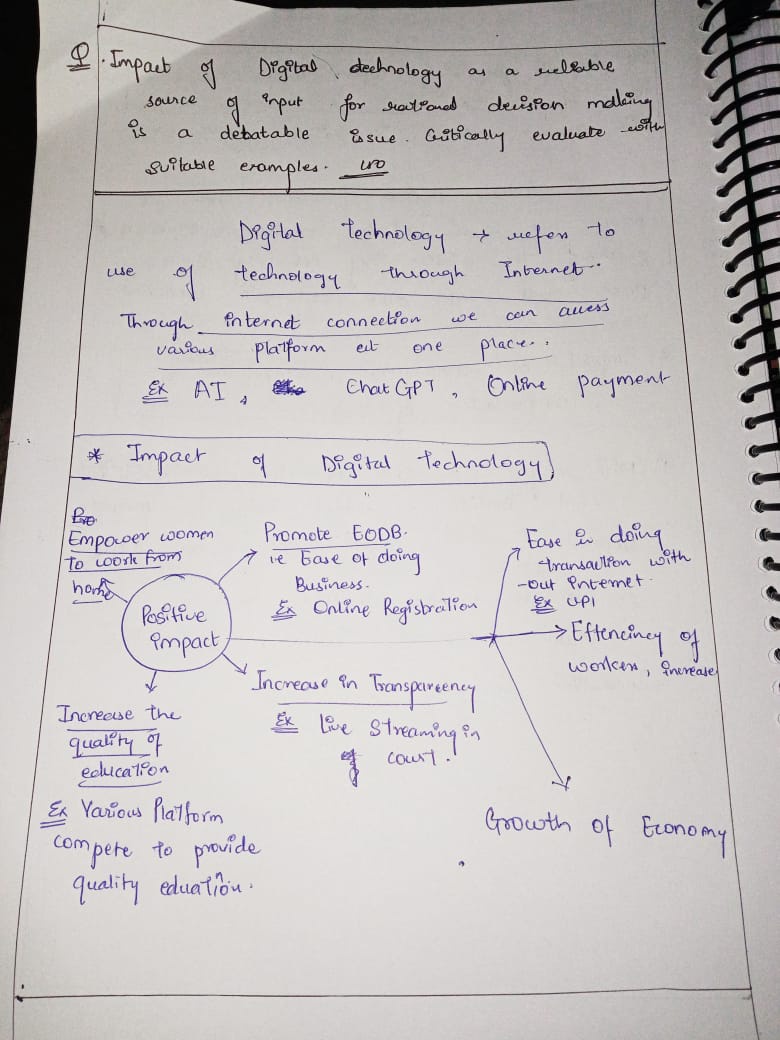 Q. Impact of Digital technology as a reliable
source of input for rational decision making
is a debatable issue. Critically evaluate with
suitable examples.
Digital technology → refers to
use of technology through Internet..
Through internet connection we can access
various platform at one place..
Ex AI, ChatGPT, Online payment
* Impact of Digital technology
Empower women
to work from
home
Positive
impact
Promote EODB.
ie Ease of doing
Business.
Ex Online Registration
Ease in doing
transaction with
-out internet.
Ex UPI
Effenciency of
workers, increase
Increase in Transpareency
Ex live streaming in
court.
Increase the
quality of
education
Ex Various Platform
compete to provide
quality eduation.
Growth of Economy